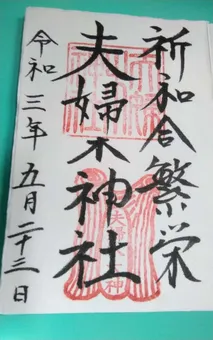 祈和合繁栄
夫婦木神社
令和三年五月二十三日